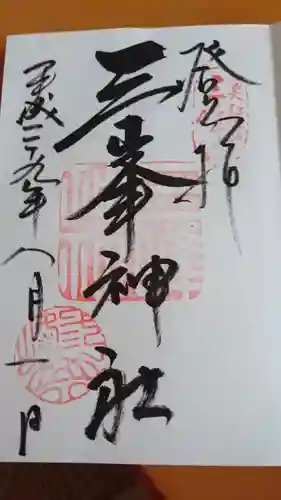 登拝
三峯神社
平成二十九年八月一日